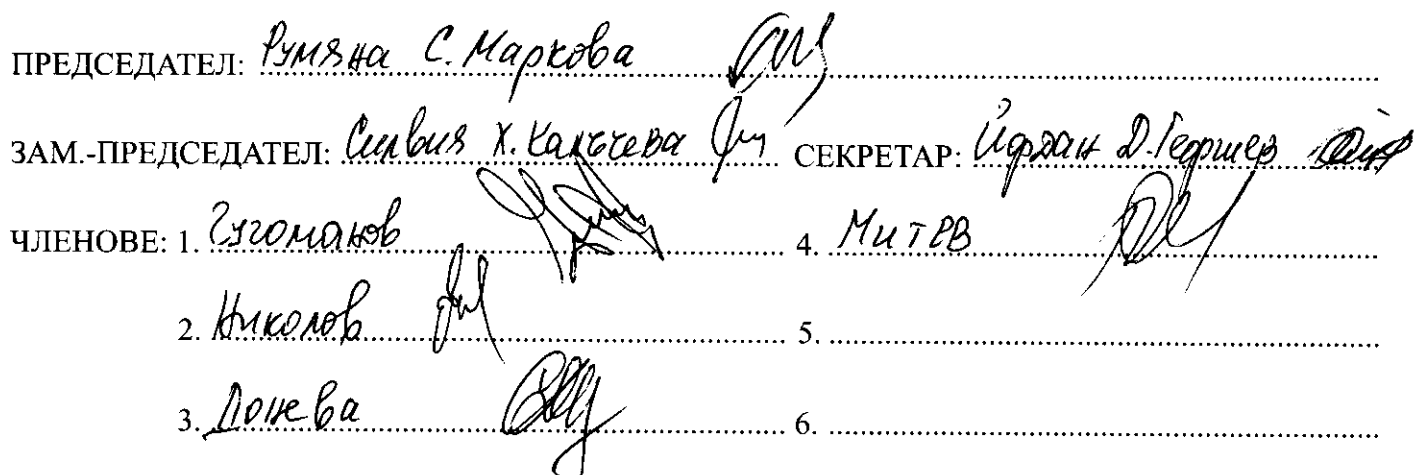 ПРЕДСЕДАТЕЛ: Румяна С. Маркова
ЗАМ.-ПРЕДСЕДАТЕЛ: Силвия Х. Калъчева СЕКРЕТАР: Йордан Д. Георгиев
ЧЛЕНОВЕ: 1. Гугоманов 4. Митев
2. Николов 5.
3. Донева 6.